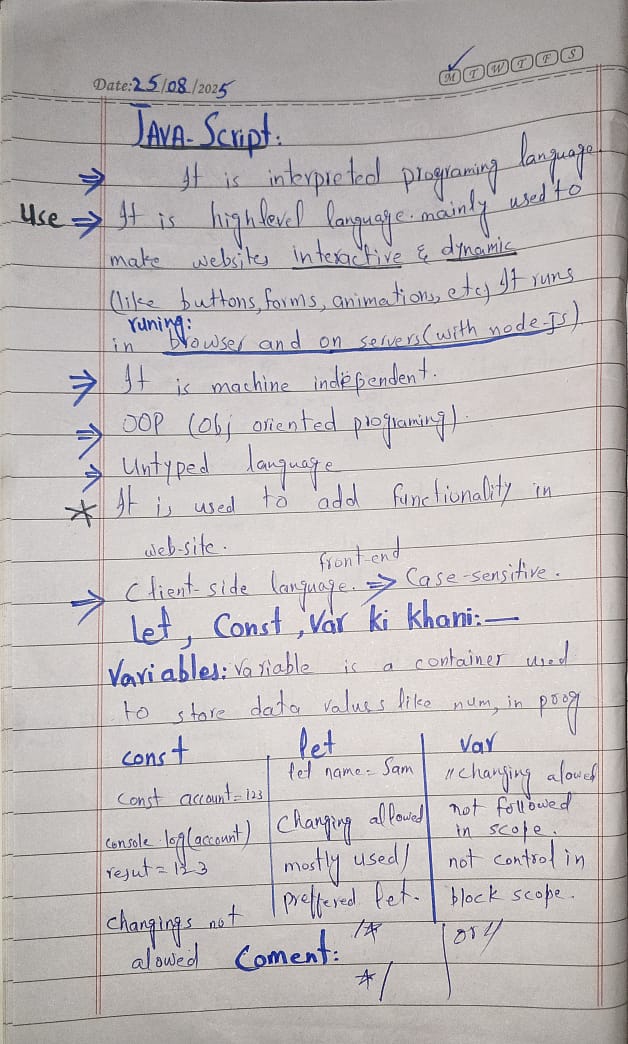 M T W T F S
Date: 25/08/2025
JAVA-Script:
⇒ It is interpreted programing language.
Use ⇒ It is high level language. mainly used to
make websites interactive & dynamic
(like buttons, forms, animations, etc) It runs
runing:
in browser and on servers (with node-Js)
⇒ It is machine independent.
⇒ OOP (Obj oriented programing)
⇒ Untyped language
* It is used to add functionality in
web-site.
front-end
⇒ Client-side language. ⇒ Case-sensitive.
let, Const, Var ki khani:—
Variables: Variable is a container used
to store data values like num, in poog
const | let | Var
Const account = 123 | let name = Sam | // changing alowed
console.log(account) | Changing allowed | not followed in scope.
resut = 123 | mostly used/ | not control in
changings not | preffered let. | block scope.
alowed Coment: /* | or //
*/